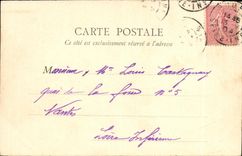 CARTE POSTALE
Ce côté est exclusivement réservé à l'adresse
Monsieur, Mr Louis
quai de la fosse N° 5
Nantes
Loire Inférieure